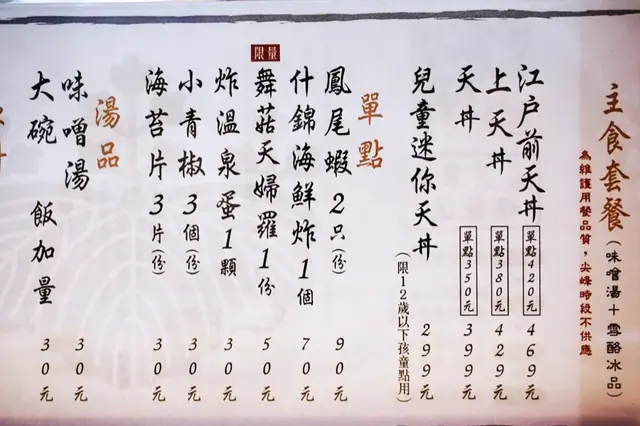 主食套餐(味噌湯+雪酪冰品)
為維護用餐品質，尖峰時段不供應
江戸前天丼 單點420元 469元
上天丼 單點380元 429元
天丼 單點350元 399元
兒童迷你天丼 299元
(限12歲以下孩童點用)
單點
鳳尾蝦2只(份) 90元
什錦海鮮炸1個 70元
限量
舞菇天婦羅1份 50元
炸溫泉蛋1顆 30元
小青椒3個(份) 30元
海苔片3片(份) 30元
湯品
味噌湯 30元
大碗 飯加量 30元